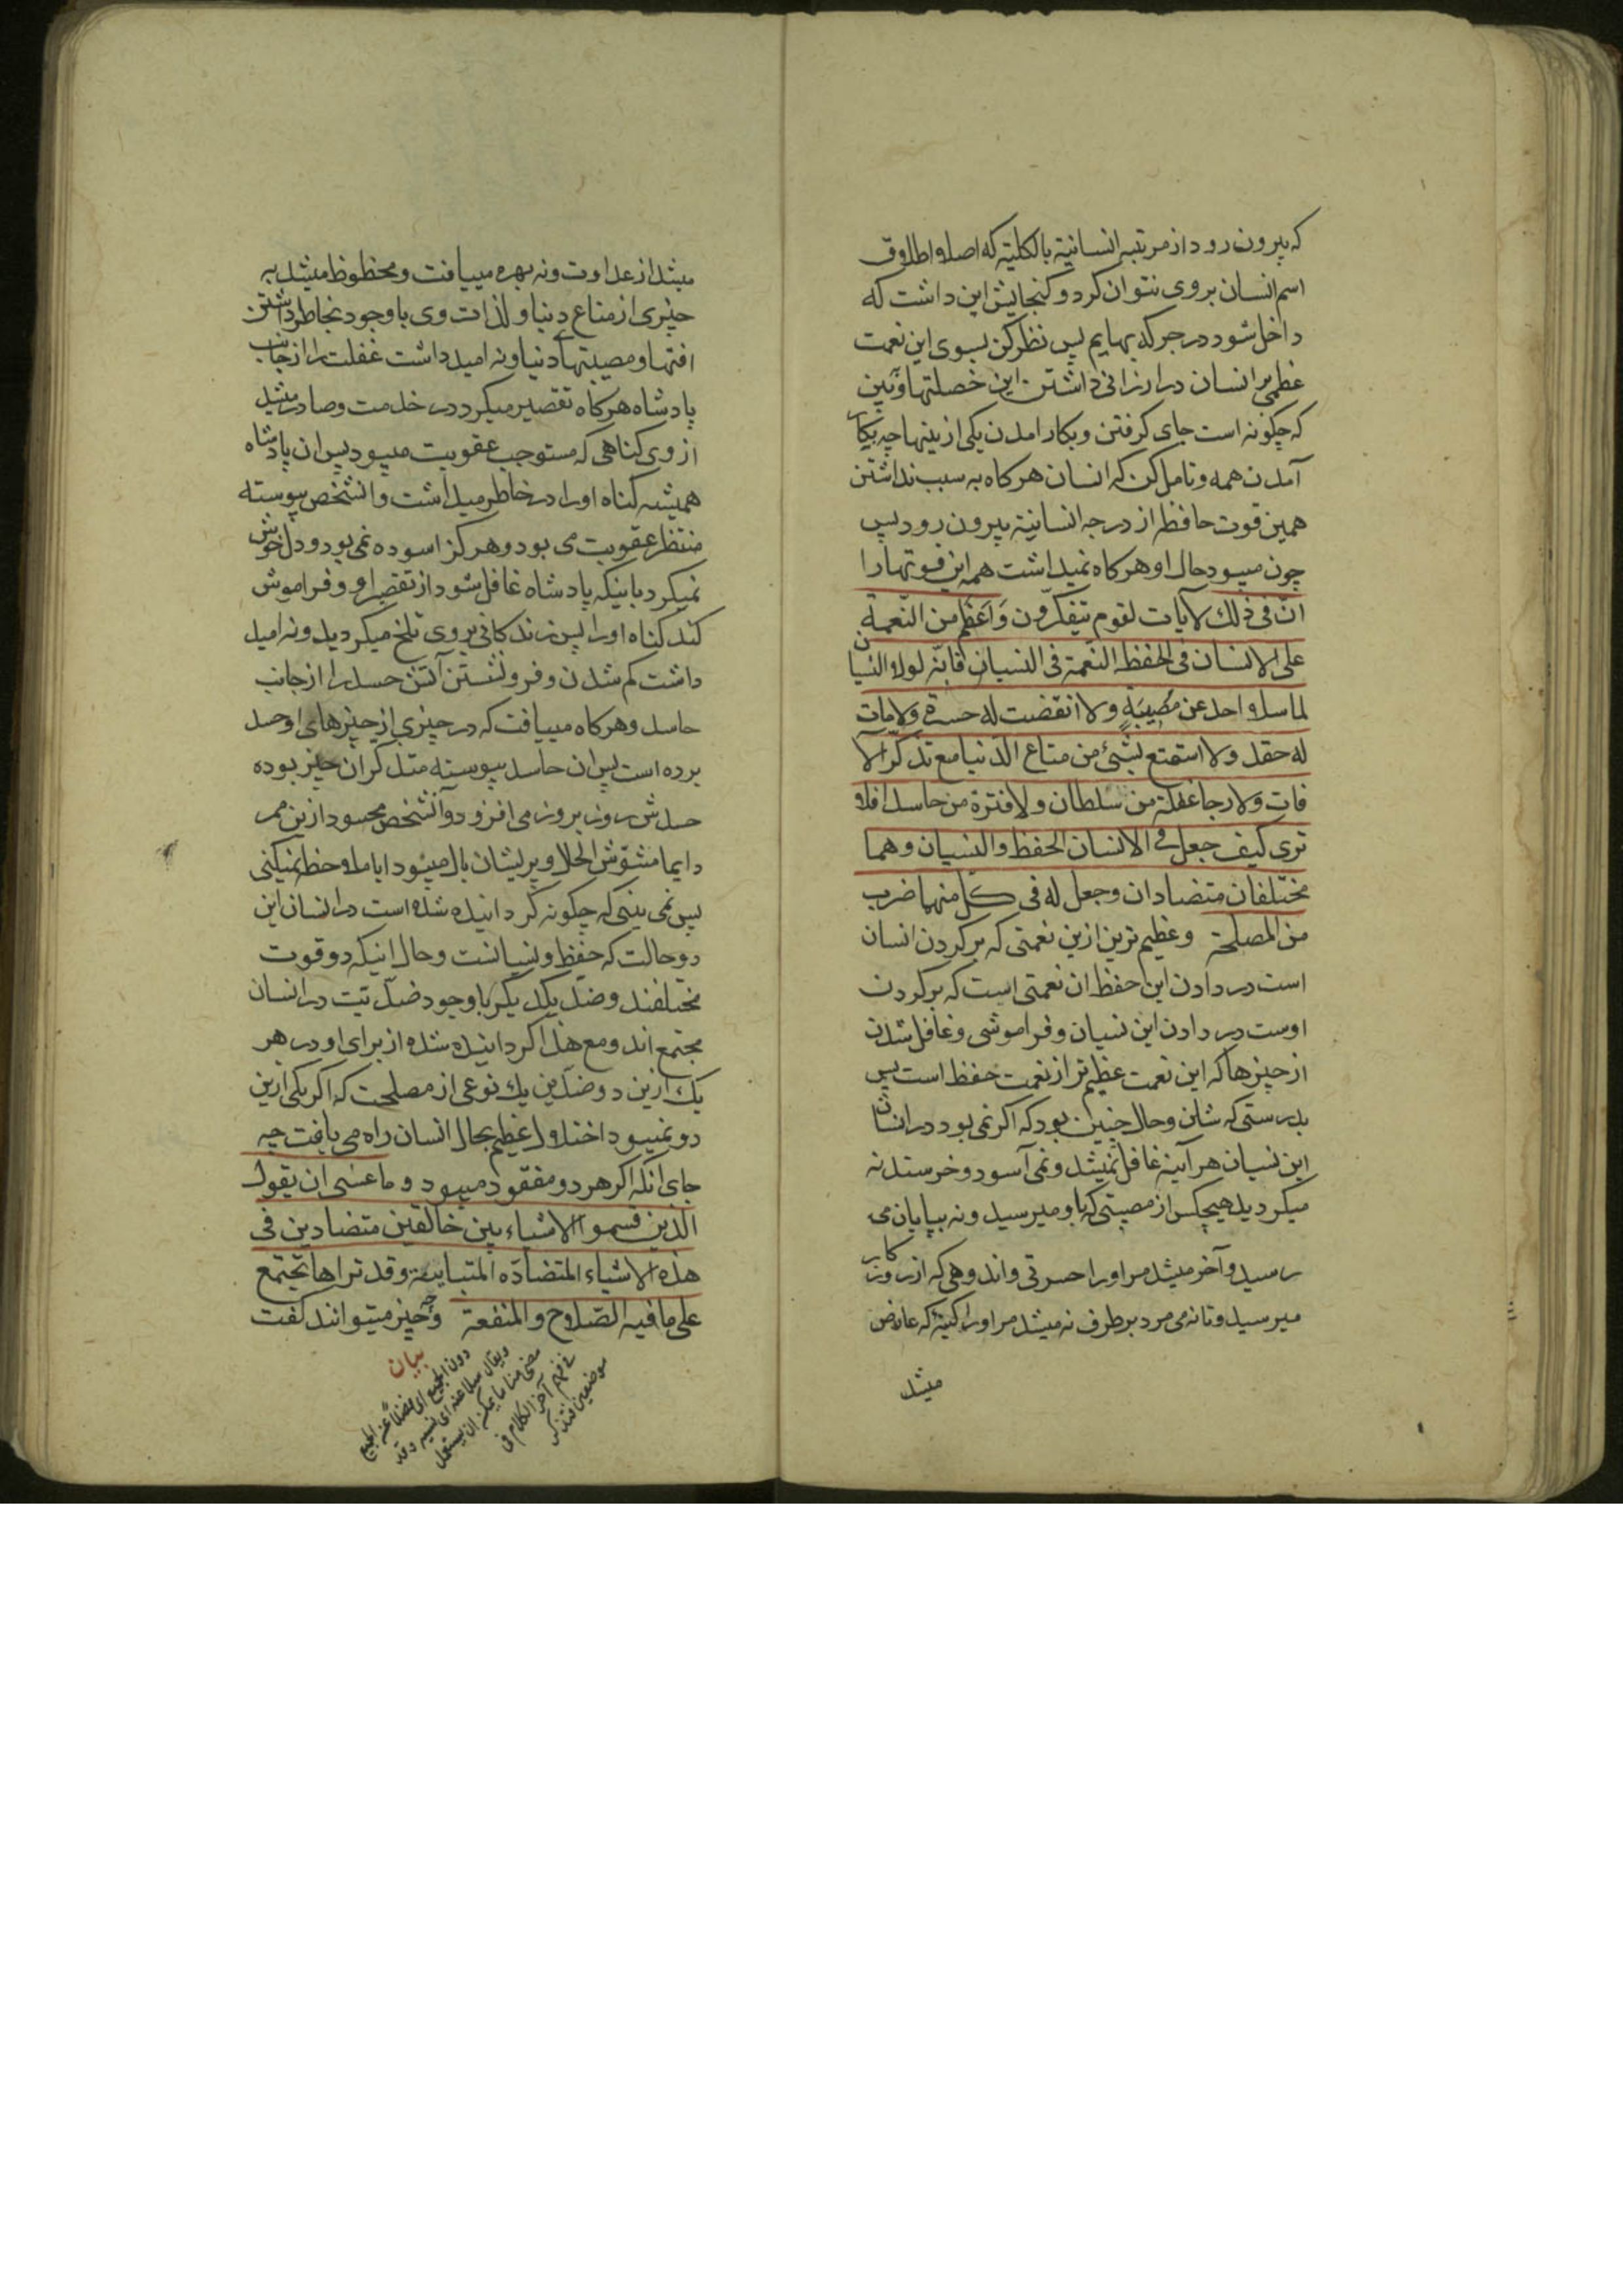 که بیرون رود از مرتبه انسانیة بالکلیة که اصلا اطلاق
اسم انسان بر وی نتوان کرد و کنجایش این داشت که
داخل شود در جرکه بهایم پس نظر کن بسوی این نعمت
عظمی بر انسان در ارزانی داشتن این خصلتها و ببین
که چکونه است جای کرفتن و بکار امدن یکی از ینها چه بکار
آمدن همه و تامل کن که انسان هرکاه به سبب نداشتن
همین قوت حافظه از درجه انسانیة بیرون رود پس
چون میبود حال او هرکاه نمیداشت همه این قوتها را
انّ فی ذلك لآیات لقوم یتفکّرون وَاَعظم من النّعمة
علی الانسان فی الحفظ النّعمة فی النسیان فانّه لولا النسیان
لما سلا احد عن مُصیبَةٍ ولا انقضت له حسرة ولا مات
له حقد ولا استمتع بشیء من متاع الدّنیا مع تذکّر الآ
فات ولا رجا غفلة من سلطان ولا فترة من حاسد افلا
تری کیف جعل فی الانسان الحفظ والنسیان وهما
مختلفان متضادان وجعل له فی کل منهما ضرب
من المصلحة وعظیم ترین ازین نعمتی که بر کردن انسان
است در دادن این حفظ ان نعمتی است که بر کردن
اوست در دادن این نسیان و فراموشی و غافل شدن
از چیزها که این نعمت عظیم تر از نعمت حفظ است پس
بدرستی که شان و حال چنین بود که اکر نمی بود در انسان
این نسیان هر آینه غافل نمیشد و نمی آسود و خرسند نه
میکردید هیچکس از مصیبتی که باو میرسید و نه بپایان می
رسید و آخر میشد مر او را حسرتی و اندوهی که از روزکار
میرسید و تا نه می مرد برطرف نه میشد مر او را کینه که عارض
میشد
میشد از عداوت و نه بهره مییافت و محظوظ میشد به
چیزی از متاع دنیا و لذات وی با وجود بخاطر داشتن
افتها و مصیبتهای دنیا و نه امید داشت غفلت را از جانب
پادشاه هرکاه تقصیر میکرد در خدمت و صادر میشد
از وی کناهی که مستوجب عقوبت میبود پس ان پادشاه
همیشه کناه او را در خاطر میداشت و انشخص پیوسته
منتظر عقوبت می بود و هرکز اسوده نمی بود و دل خوش
نمیکرد باینکه پادشاه غافل شود از تقصیر او و فراموش
کند کناه او را پس زندکانی بر وی تلخ میکردید و نه امید
داشت کم شدن و فرو نشستن آتش حسد را از جانب
حاسد و هرکاه مییافت که در چیزی از چیزهای او حسد
برده است پس ان حاسد پیوسته متذکر ان چیز بوده
حسدش روز بروز می افزود و آنشخص محسود ازین ممر
دایما مشوّش الحال و پریشان بال میبود ایا ملاحظه نمیکنی
پس نمی بینی که چکونه کردانیده شده است در انسان این
دو حالت که حفظ و نسیانست و حال اینکه دو قوت
مختلفند و ضدّ یکدیکر با وجود ضدّیت در انسان
مجتمع اند و مع هذا کردانیده شده از برای او در هر
یك ازین دو ضدّین یك نوعی از مصلحت که اکر یکی ازین
دو نمیبود اختلال عظیم بحال انسان راه می یافت چه
جای انکه اکر هر دو مفقود میبود و ما عسی ان یقول
الّذین قسموا الاشیاء بین خالقین متضادین فی
هذه الاشیاء المتضادّه المتباینة وقد تراها تجتمع
علی ما فیه الصّلاح والمنفعة و چه چیز میتوانند کفت
بیان
دون الجمیع ای فضلاً عن الجمیع
ویقال سلا عنه ای نسیه وقد
مضی منا ما یمکن ان یستعمل
فی فهم آخر الکلام فی
موضعین فتذکر